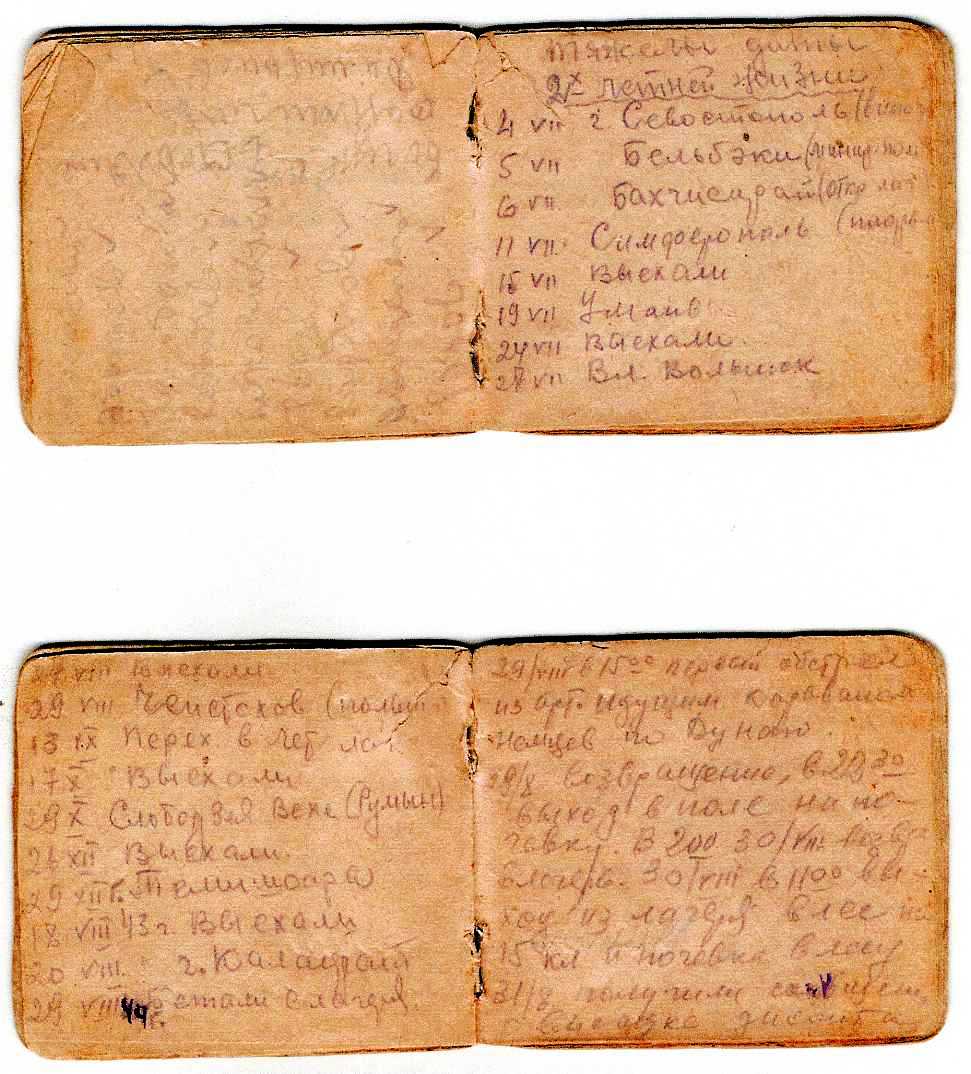 Тяжелы даты
2х летней жизни
4 VII г. Севостополь
5 VII Бельбэки
6 VII. Бахчисарай (откр лаг
11 VII. Симферополь
15 VII Выехали
19 VII Умань
24 VII Выехали.
28 VII Вл. Волынск
VIII Выехали.
29 VIII Ченстохов
13 IX Перех. в чет лаг.
17 X Выехали
29 X Слободзея Веке (Румын)
26 XII Выехали.
29 XII Темишоара
18 VIII 43 г. Выехали
20 VIII. г. Калафат
29 VIII 44г. из лагеря.
29/VIII в 15 00 первый обстрел
из арт. идущим караванам
немцев по Дунаю.
29/8 возвращение, в 22 30
выход в поле на но-
чевку. В 200 30/VIII.
в лагерь. 30/VIII в 1100 вы-
ход из лагеря в лес на
15 кл и ночевка в лесу
31/8 получили
высадке десанта